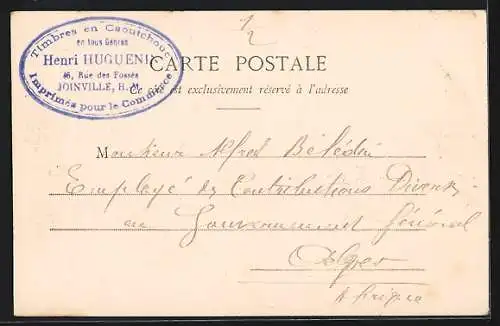 Timbres en Caoutchouc
en tous Genres
Henri HUGUENIN
46, Rue des Fossés
JOINVILLE, H.-M.
Imprimés pour le Commerce
1/2
CARTE POSTALE
Ce côté est exclusivement réservé à l'adresse
Monsieur Alfred
Employé des Contributions Diverses
au Gouvernement Général
Alger
Afrique